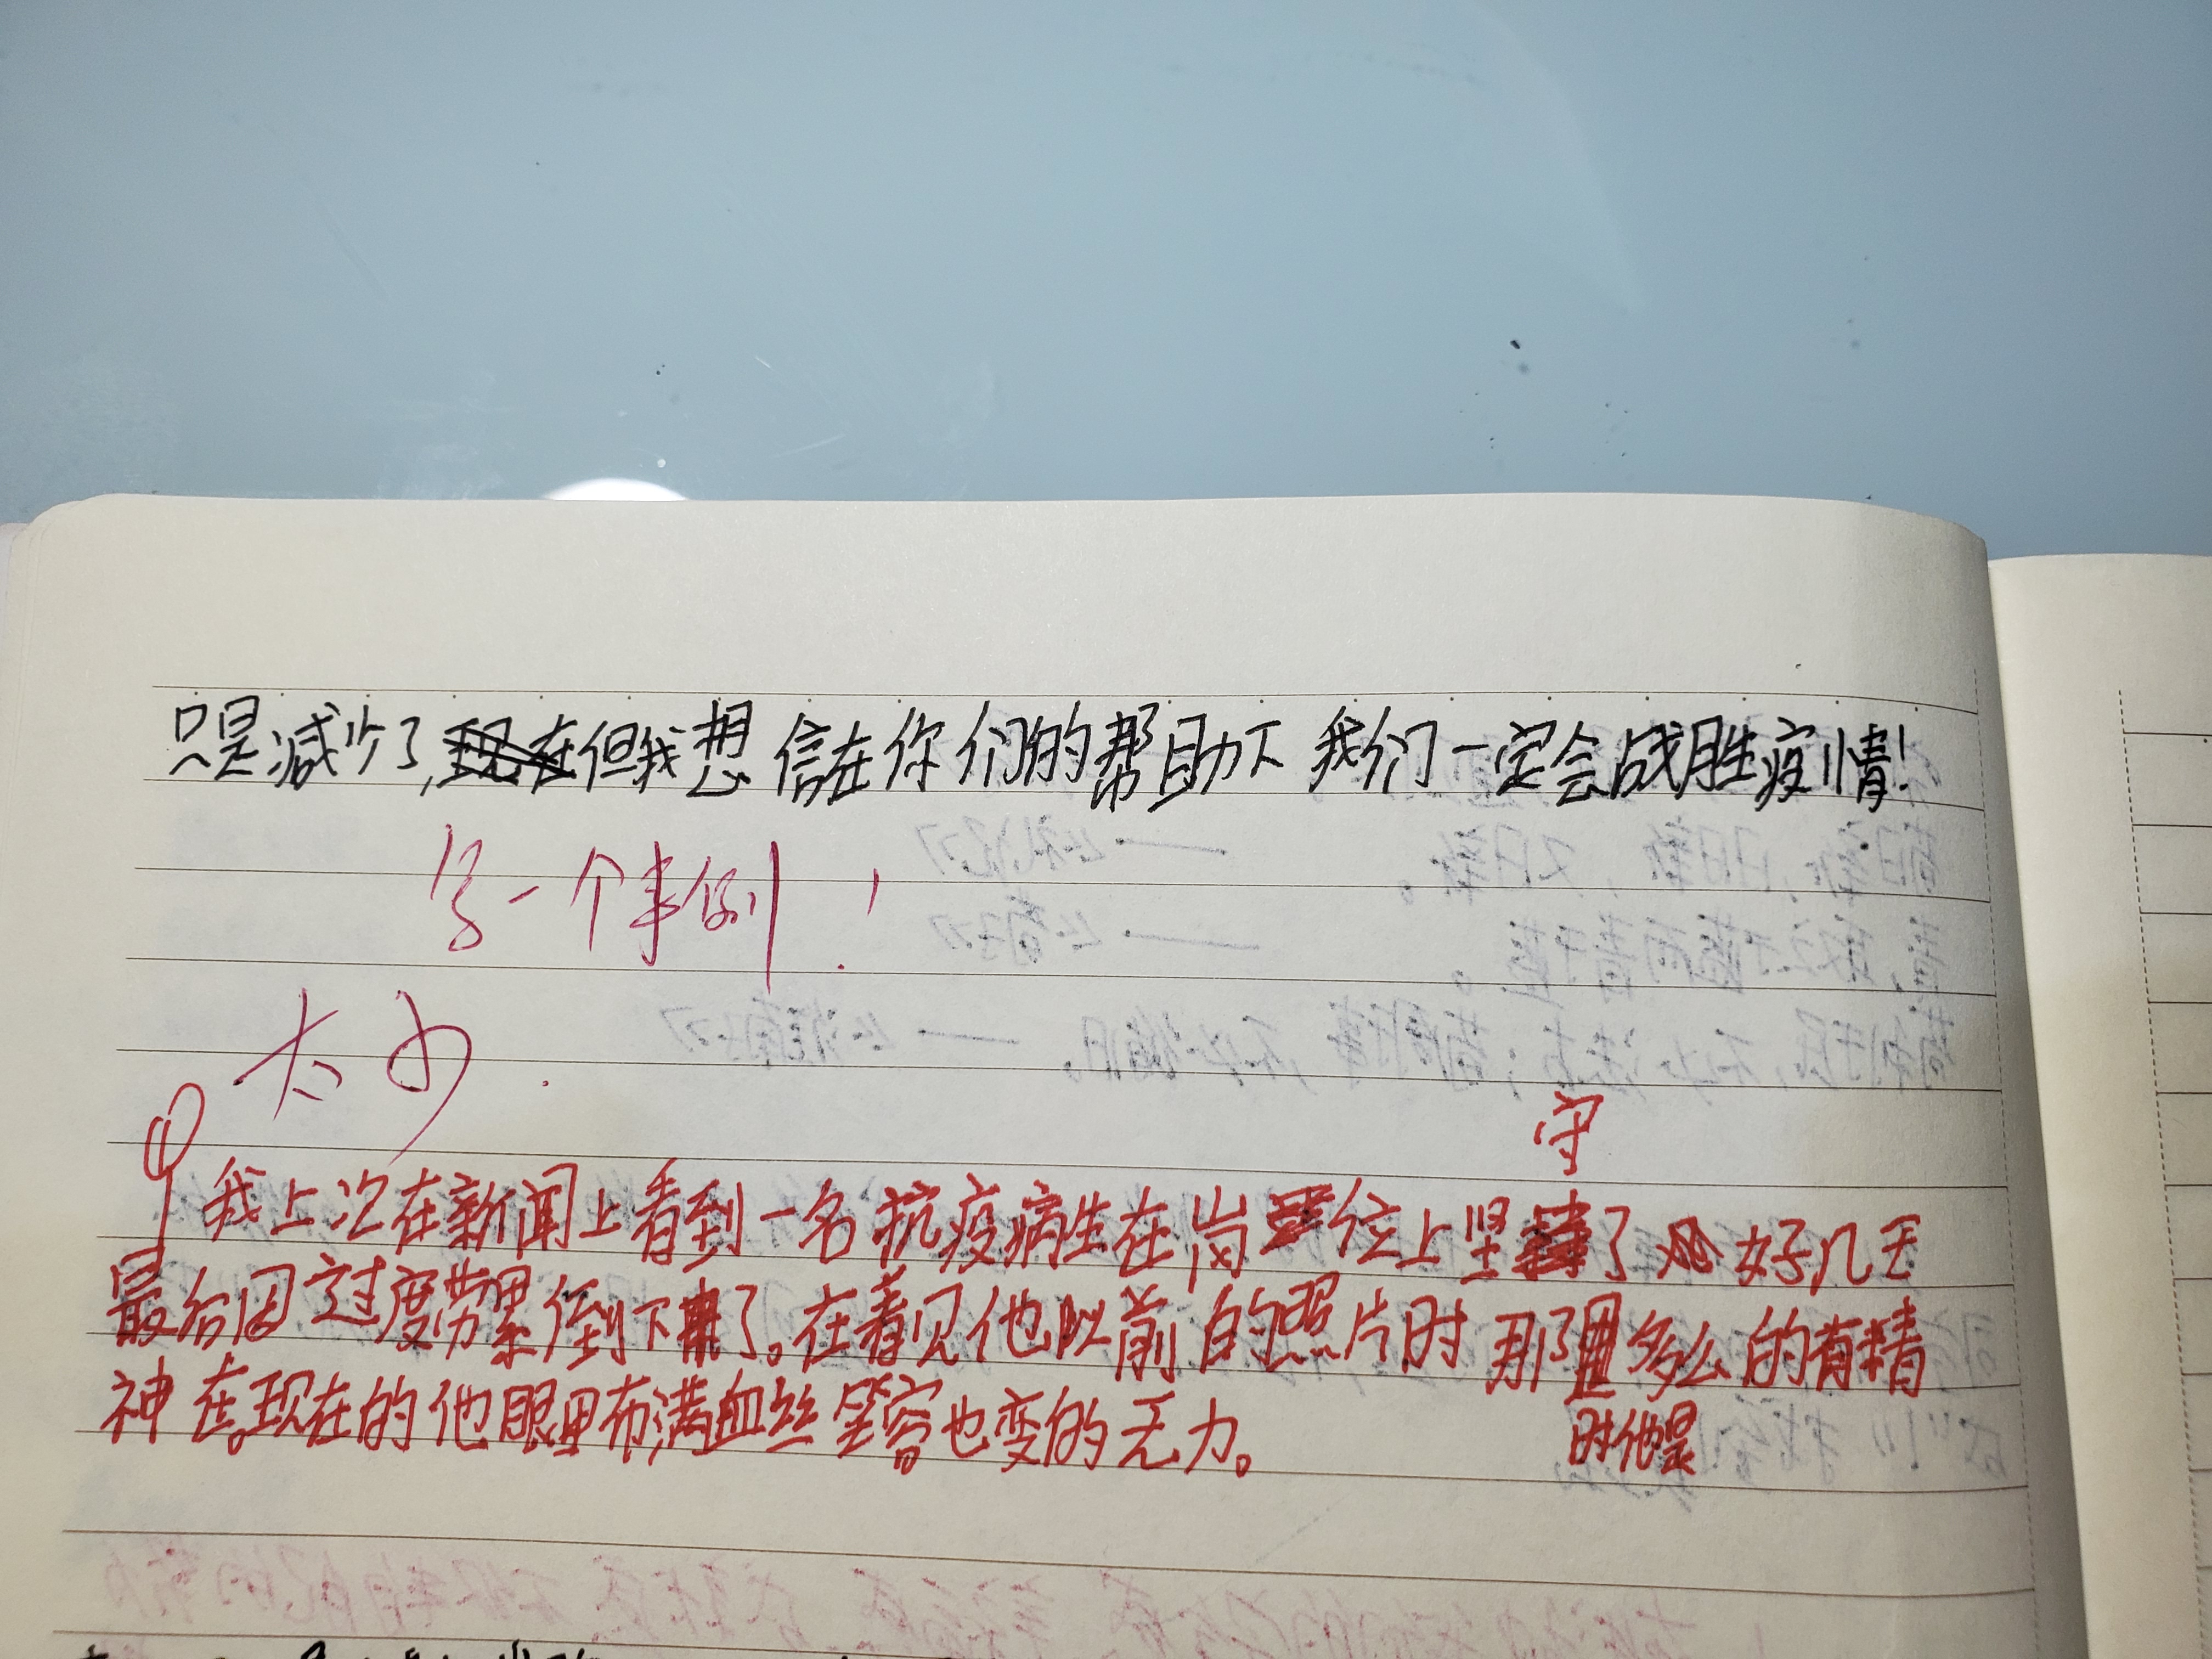 只是减少了,但我想信在你们的帮助下我们一定会战胜疫情!
写一个事例!
太少.
守
我上次在新闻上看到一名抗疫病生在岗位上坚了好几天
最后因过度劳累倒下了。在看见他以前的照片时那多么的有精
神在。现在的他眼里布满血丝笑容也变的无力。
时他是